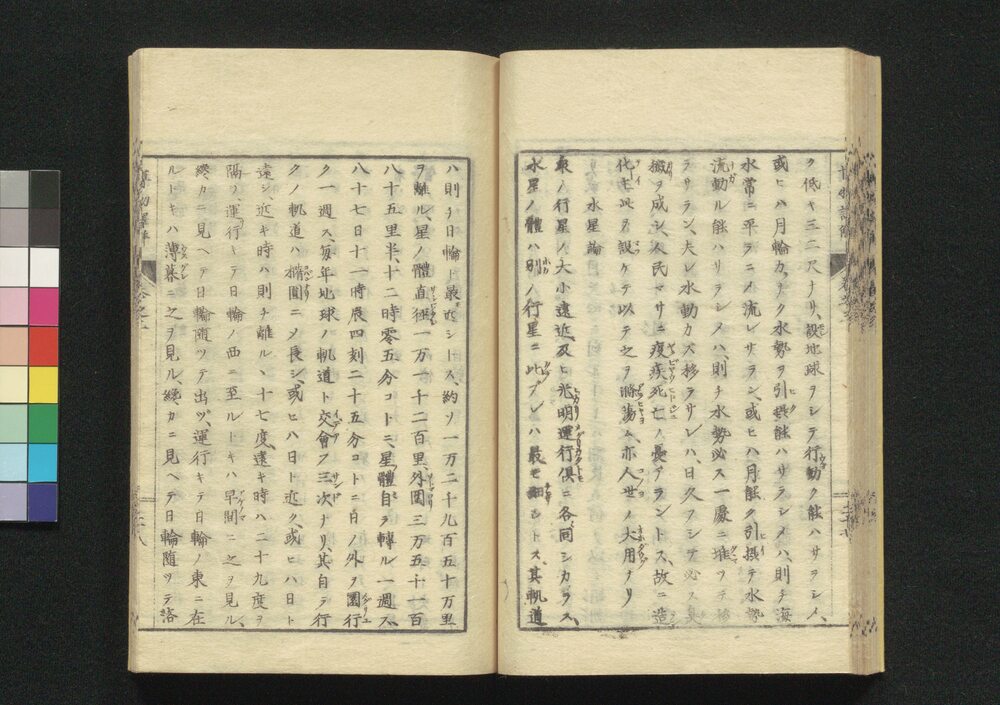 ク低キ三二尺ナリ、設地球ヲシテ行動ク能ハサラシメ、
或ヒハ月輪カ、ナク水勢ヲ引摂能ハサラシメハ、則チ海
水常ニ平ラニメ流レサラン、或ヒハ月能ク引摂テ水勢
流動ル能ハサラシメハ、則チ水勢必ス一處ニ堆ツテ
ラサラン、夫レ水動カス移ラサレハ、日久フシテ必ス臭
擬ヲ成シ、人民マサニ疫疾死亡ノ憂アラントス、故ニ造
化ギ此ヲ設ケテ以テ之ヲ滌蕩ム、亦人世ノ大用ナリ
水星論
衆ノ行星ノ大小遠近及ヒ光明運行倶ニ各同シカラス、
水星ノ體ハ別ノ行星ニ比ブレハ最モ細シトス、其軌道
ハ則チ日輪ト最近シトス、約ソ一万二千九百五十万里
ヲ離ル、星ノ體直徑一万一千二百里、外圍三万五千一百
八十五里半、十二時零五分コトニ、星體自ラ轉ル一週ス、
八十七日十一時辰四刻二十五分コトニ日ノ外ヲ圜行
ク一週ス、每年地球ノ軌道ト交會フ三次ナリ、其自ラ行
クノ軌道ハ橢圓ニメ長シ、或ヒハ日ト近ク、或ヒハ日ト
遠シ、近キ時ハ則チ離ル、十七度、遠キ時ハ二十九度ヲ
隔ツ、運行キテ日輪ノ西ニ至ルトキハ早間ニ之ヲ見ル、
纔カニ見ヘテ日輪隨ツテ出ヅ、運行キテ日輪ノ東ニ在
ルトキハ薄暮ニ之ヲ見ル、纔カニ見ヘテ日輪隨ツテ落